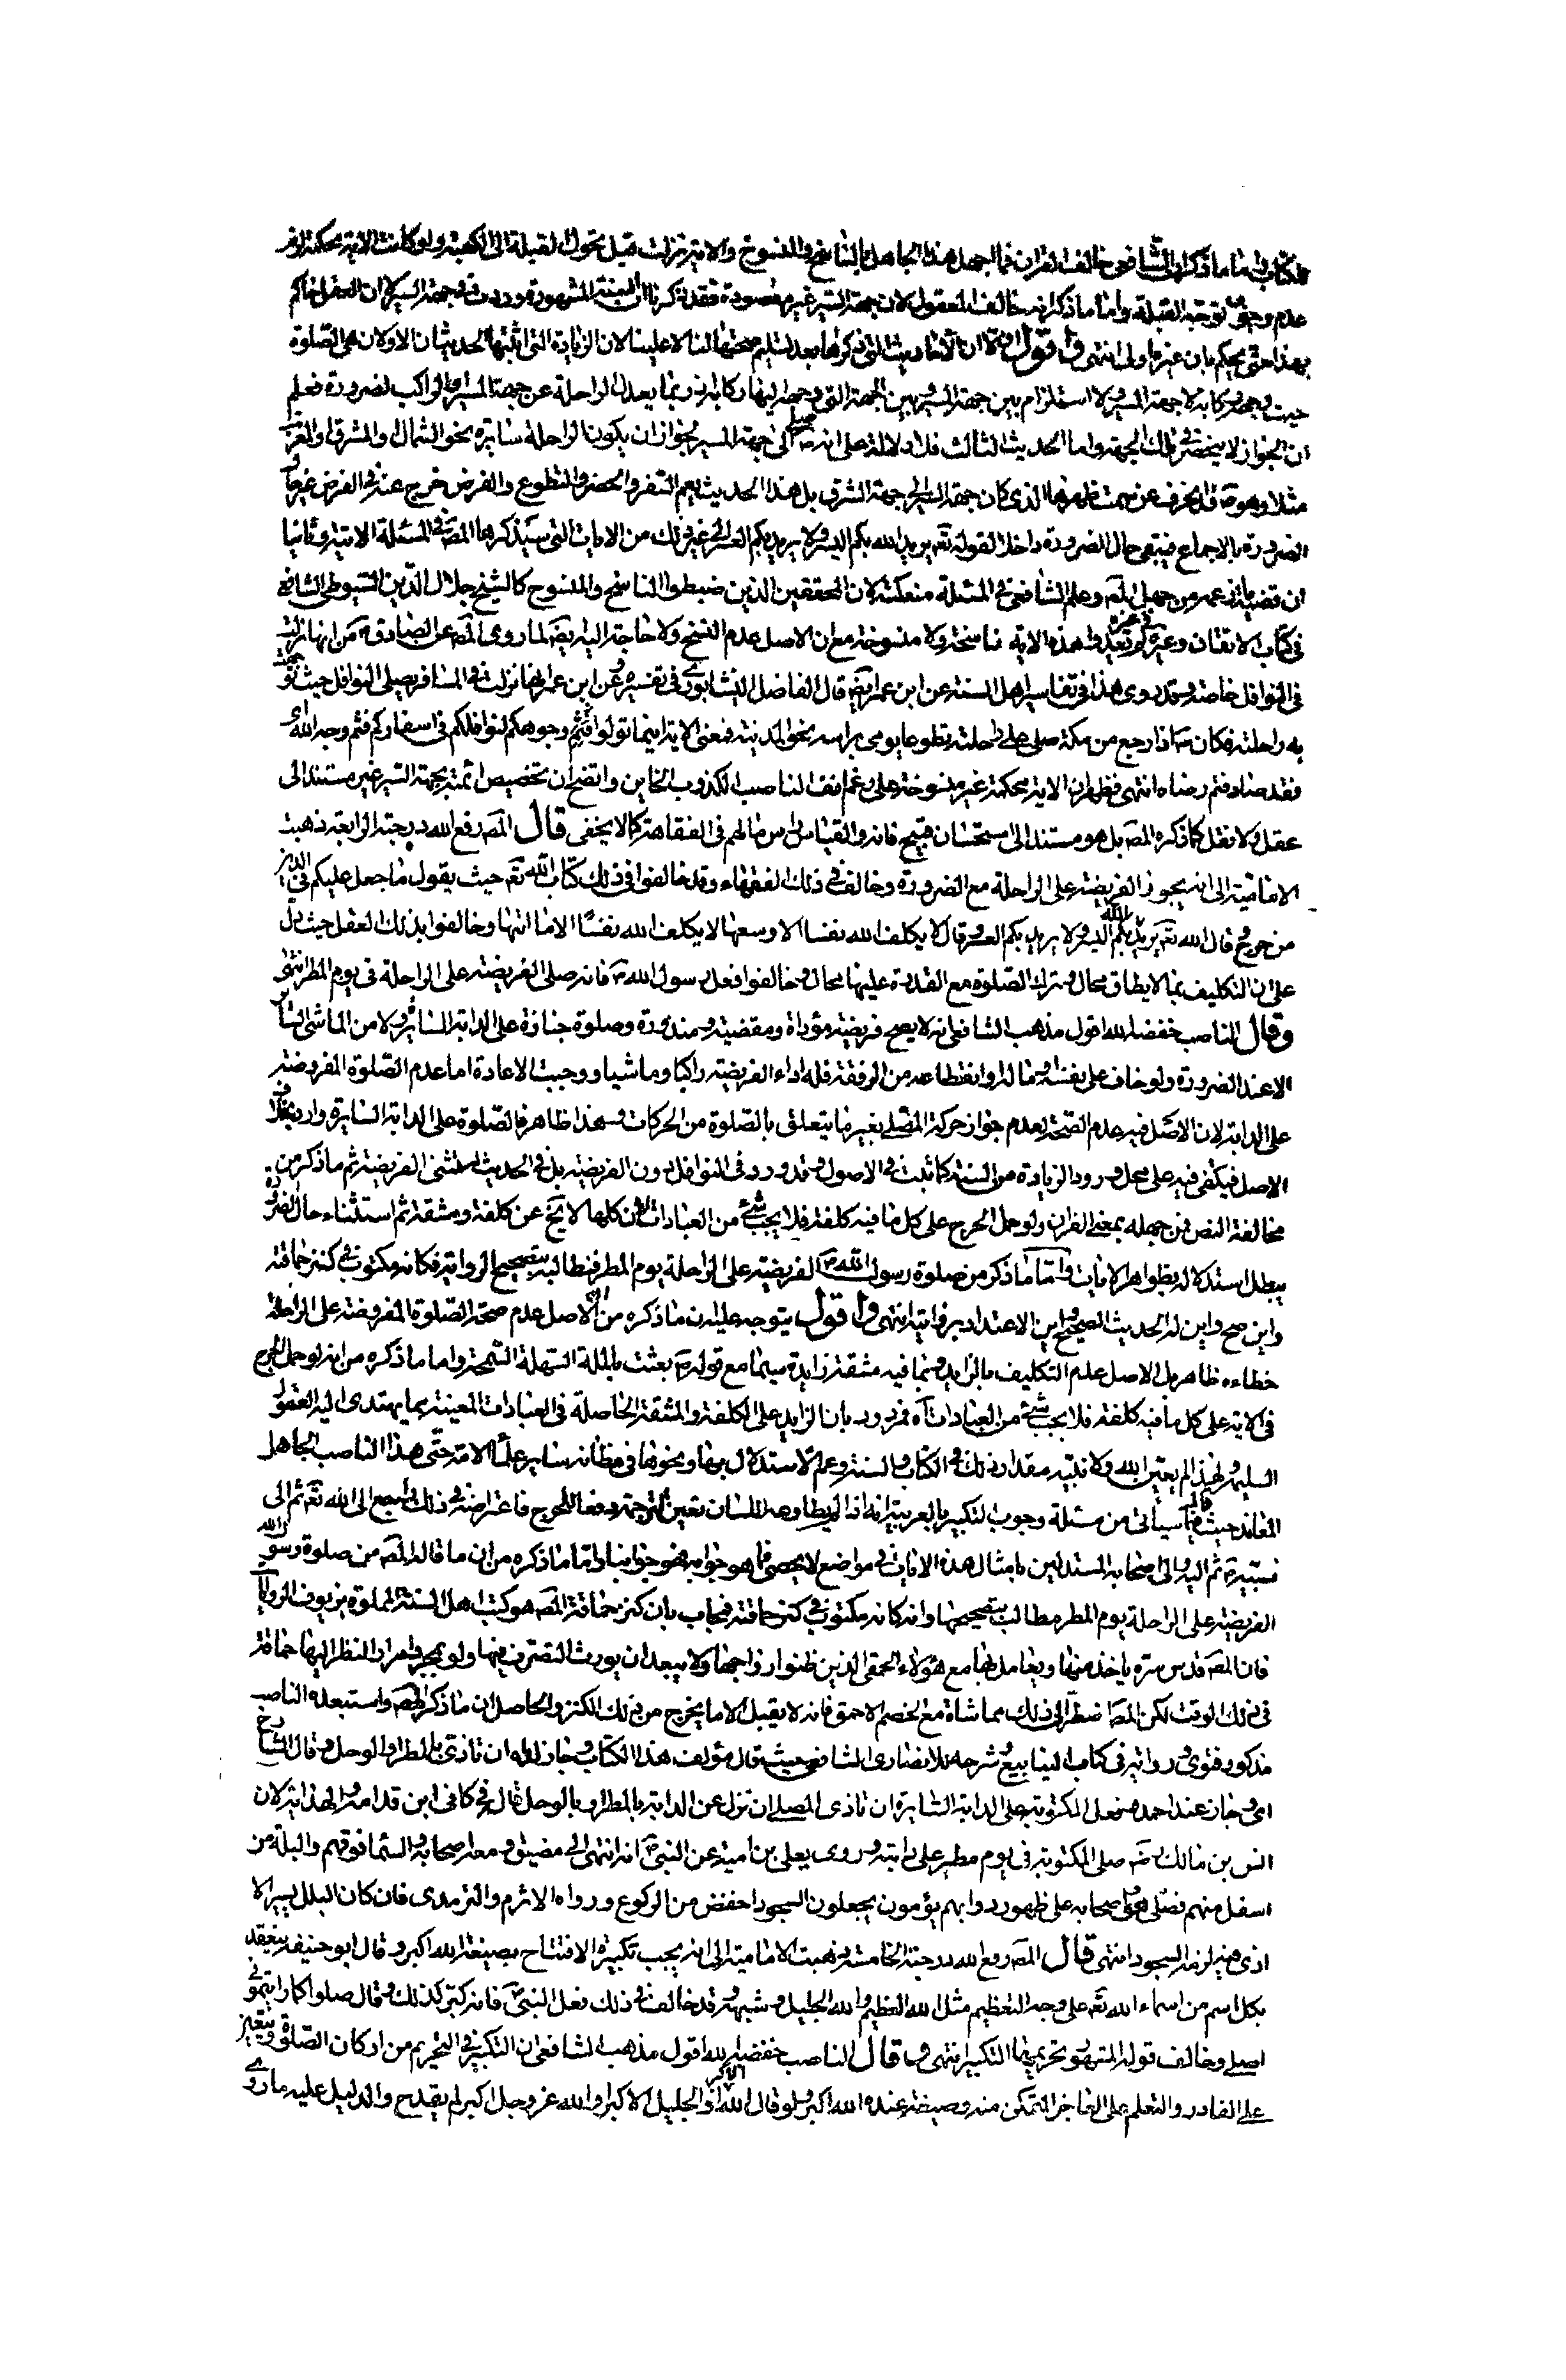 للكتاب واما ما ذكر ان الشافعي خالف القران فما اجهل هذا الجاهل بالناسخ والمنسوخ والاية نزلت قبل تحول القبلة الى الكعبة ولو كانت الاية محكمة لزم
عدم وجوب توجه القبلة واما ما ذكر انه خالف المعقول لان جهة السير غير مقصودة فقد ذكرنا ان السنة المشهورة وردت في جهة السير لا ان العقل حاكم
بهذا حتى يحكم بان غيره اولى انتهى واقول اولا ان الاحاديث التي ذكرها بعد تسليم صحتها لنا لا علينا لان الزيادة التي اثبتها الحديثان الاولان هي الصلوة
حيث وجهه ركابه لا جهة المسير ولا استلزام بين جهة المسير وبين الجهة التي وجه اليها ركابه اذ ربما يعدل الراحلة عن جهة المسير الراكب لضرورة فعلم
ان الجواز لا ينحصر في تلك الجهة واما الحديث الثالث فلا دلالة على انه صلى الى جهة المسير لجواز ان يكون الراحلة سائرة نحو الشمال والمشرق والغرب
مثلا وهو ص قد انحرف عن سمت ظهرها الذي كان جهة السير الى جهة الشرق بل هذا الحديث يعم السفر والحضر والتطوع والفرض خرج عنه في الفرض غير حال
الضرورة بالاجماع فيبقى حال الضرورة داخلا لقوله تعه يريد الله بكم اليسر ولا يريد بكم العسر الى غير ذلك من الايات التي سيذكرها المصه في المسئلة الاتية وثانيا
ان قضية ما زعمه من جهل المصه وعلم الشافعي في المسئلة منعكسة لان المحققين الذين ضبطوا الناسخ والمنسوخ كالشيخ جلال الدين السيوطي الشافعي
في كتاب الاتقان وغيره لم يعدوا هذه الاية ناسخة ولا منسوخة مع ان الاصل عدم النسخ ولا حاجة اليه ايضا لما روى المصه عن الصادق ع من انها نزلت
في النوافل خاصة وقد روى هذا في تفاسير اهل السنة عن ابن عمر ايضا قال الفاضل النيشابوري في تفسيره وعن ابن عمر انها نزلت في المسافر يصلي النوافل حيث توجهت
به راحلته وكان ص اذا رجع من مكة صلى على راحلته تطوعا يومي براسه نحو المدينة فمعنى الاية اينما تولوا وجوهكم لنوافلكم في اسفاركم فثم وجه الله اي
فقد صادفتم رضاه انتهى فظهر ان الاية محكمة غير منسوخة على رغم انف الناصب الكذوب الخاين واتضح ان تخصيص ائمته بجهة السير غير مستند الى
عقل ولا نقل كما ذكره المصه بل هو مستند الى استحسان قبيح فانه والقياس راس مالهم في الفقاهة كما لا يخفى قال المصه رفع الله درجته الرابعة ذهبت
الامامية الى انه يجوز الفريضة على الراحلة مع الضرورة وخالف في ذلك الفقهاء وقد خالفوا في ذلك كتاب الله تعه حيث يقول ما جعل عليكم في الدين
من حرج وقال الله تعه يريد الله بكم اليسر ولا يريد بكم العسر وقال لا يكلف الله نفسا الا وسعها لا يكلف الله نفسا الا ما اتيها وخالفوا بذلك العقل حيث دل
على ان التكليف بما لا يطاق محال وترك الصلوة مع القدرة عليها محال وخالفوا فعل رسول الله ص فانه صلى الفريضة على الراحلة في يوم المطر انتهى
وقال الناصب خفضه الله اقول مذهب الشافعي انه لا يصح فريضة مؤداة ومقضية ومنذورة وصلوة جنازة على الدابة السائرة ولا من الماشي السائر
الا عند الضرورة ولو خاف على نفسه وماله او انقطاعه من الرفقة فله اداء الفريضة راكبا وماشيا ووجبت الاعادة اما عدم الصلوة المفروضة
على الدابة لان الاصل فيه عدم الصحة بعدم جواز حركة المصلي بغير ما يتعلق بالصلوة من الحركات وهذا ظاهر فالصلوة على الدابة السايرة وارد بخلاف
الاصل فيكتفى فيه على محل ورود الزيادة من السنة كما ثبت في الاصول وقد ورد في النوافل دون الفريضة بل في الحديث استثنى الفريضة ثم ما ذكر من
مخالفة النص فمن جهله بمعنى القران ولو حمل الحرج على كل ما فيه كلفة فلا يجب شئ من العبادات لان كلها لا يخ عن كلفة ومشقة ثم استثناء حال الضرورة
يبطل استدلاله بظواهر الايات واما ما ذكر من صلوة رسول الله ص الفريضة على الراحلة يوم المطر فنطالبه بتصحيح الرواية فكانه مكتوب في كنز حماقته
واين صح واين له الحديث الصحيح واين الاعتداد بروايته انتهى واقول يتوجه عليه ان ما ذكره من ان الاصل عدم صحة الصلوة المفروضة على الراحلة
خطاءه ظاهر بل الاصل عدم التكليف بالزايد وبما فيه مشقة زايدة سيما مع قوله ص بعثت بالملة السهلة السمحة واما ما ذكره من انه لو حمل الحرج
في الاية على كل ما فيه كلفة فلا يجب شئ من العبادات اه فمردود بان الزايد على الكلفة والمشقة الحاصلة في العبادات المعينة بما يهتدى اليه العقول
السليمة ولهذا لم يعين الله ولا نبيه مقدار ذلك في الكتاب والسنة وعم الاستدلال بها ونحوها في مظانه ساير علماء الامة حتى هذا الناصب الجاهل
المعاند حيث قال فيما سيأتي من مسئلة وجوب التكبير بالعربية انه اذا لم يطاوعه اللسان تعين الترجمة دفعا للحرج فاعتراضه في ذلك راجع الى الله تعه ثم الى
نبيه ص ثم اليه والى اصحابه المستدلين بامثال هذه الايات في مواضع لا يحصى فما هو جوابه فهو جوابنا واما ما ذكره من ان ما قاله المصه من صلوة رسول الله
الفريضة على الراحلة يوم المطر مطالب بتصحيحها وانه كانه مكتوب في كنز حماقته فيجاب بان كنز حماقة المصه هو كتب اهل السنة المملوة بزيوف الروايات
فان المصه قدس سره ياخذ منها ويعامل بها مع هؤلاء الحمقى الذين ظنوا رواجها ولا يبعد ان يورث التصرف فيها ولو بمجرد امرار النظر اليها حماقة
في ذلك الوقت لكن المصه اضطر الى ذلك مماشاة مع الخصم الاحمق فانه لا يقبل الا ما يخرج من ذلك الكنز والحاصل ان ما ذكره المصه واستبعده الناصب
مذكور فتوى ورواية في كتاب الينابيع وشرحه للانصاري الشافعي حيث قال مؤلف هذا الكتاب وجاز له ان تاذى بالمطر او الوحل وقال الشارح
اي وجاز عند احمد فعل المكتوبة على الدابة السايرة ان تاذى المصلي ان نزل عن الدابة بالمطر او بالوحل قال في كافي ابن قدامة والهداية لان
انس بن مالك رضه صلى المكتوبة في يوم مطير على دابته وروى يعلى بن امية عن النبي ص انه انتهى الى مضيق ومعه اصحابه والسماء فوقهم والبلة من
اسفل منهم فصلى هو واصحابه على ظهور دوابهم يؤمون يجعلون السجود اخفض من الركوع ورواه الاثرم والترمذي فان كان البلل يسيرا لا
اذى فيه لزمه السجود انتهى قال المصه رفع الله درجته الخامسة ذهبت الامامية الى انه يجب تكبيرة الافتتاح بصيغة الله اكبر وقال ابو حنيفة ينعقد
بكل اسم من اسماء الله تعه على وجه التعظيم مثل الله العظيم والله الجليل وشبهه وقد خالف في ذلك فعل النبي ص فانه كبر كذلك وقال صلوا كما رايتموني
اصلي وخالف قوله المشهور وتحريمها التكبير انتهى وقال الناصب خفضه الله اقول مذهب الشافعي ان التكبير في التحريم من اركان الصلوة ويتعين
على القادر والتعلم على العاجز المتمكن منه وصيغته عنده الله اكبر ولو قال الله الاكبر او الجليل الاكبر او الله عز وجل اكبر لم يقدح والدليل عليه ما روى